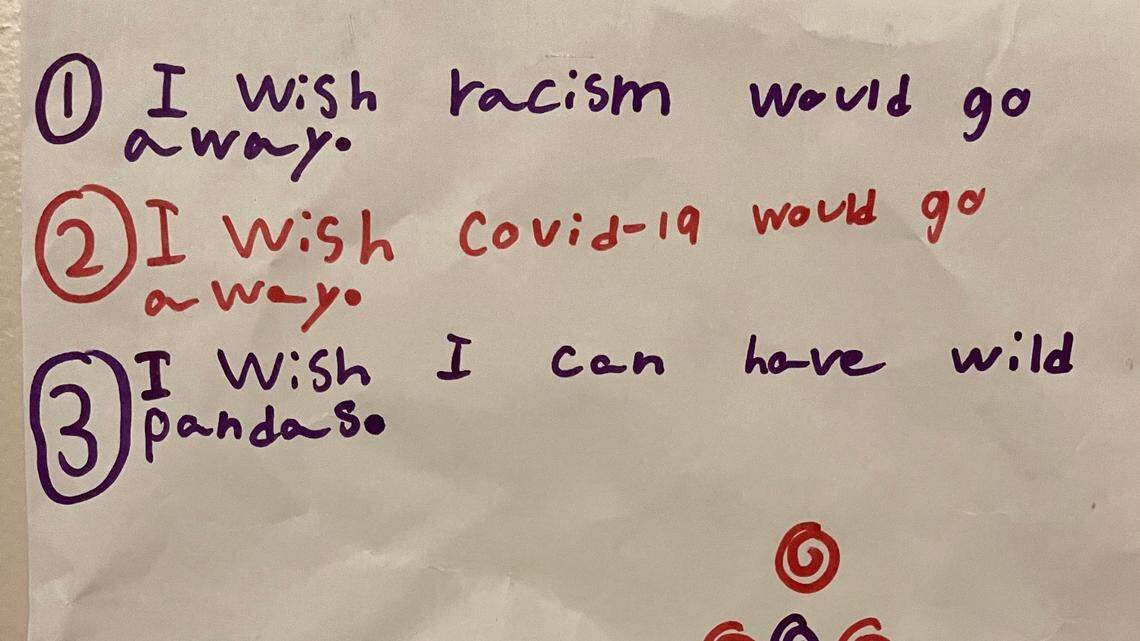 ① I Wish racism would go
away.
② I Wish Covid-19 would go
away.
③ I Wish I can have wild
pandas.